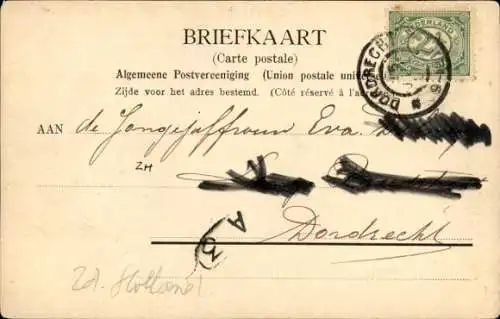 BRIEFKAART
(Carte postale)
Algemeene Postvereeniging (Union postale univer
Zijde voor het adres bestemd. (Côté réservé à l'a
NEDERLAND
DORDRECHT
AAN de Jongejuffrouw Eva
ZH
A
3
Dordrecht
Zd. Holland